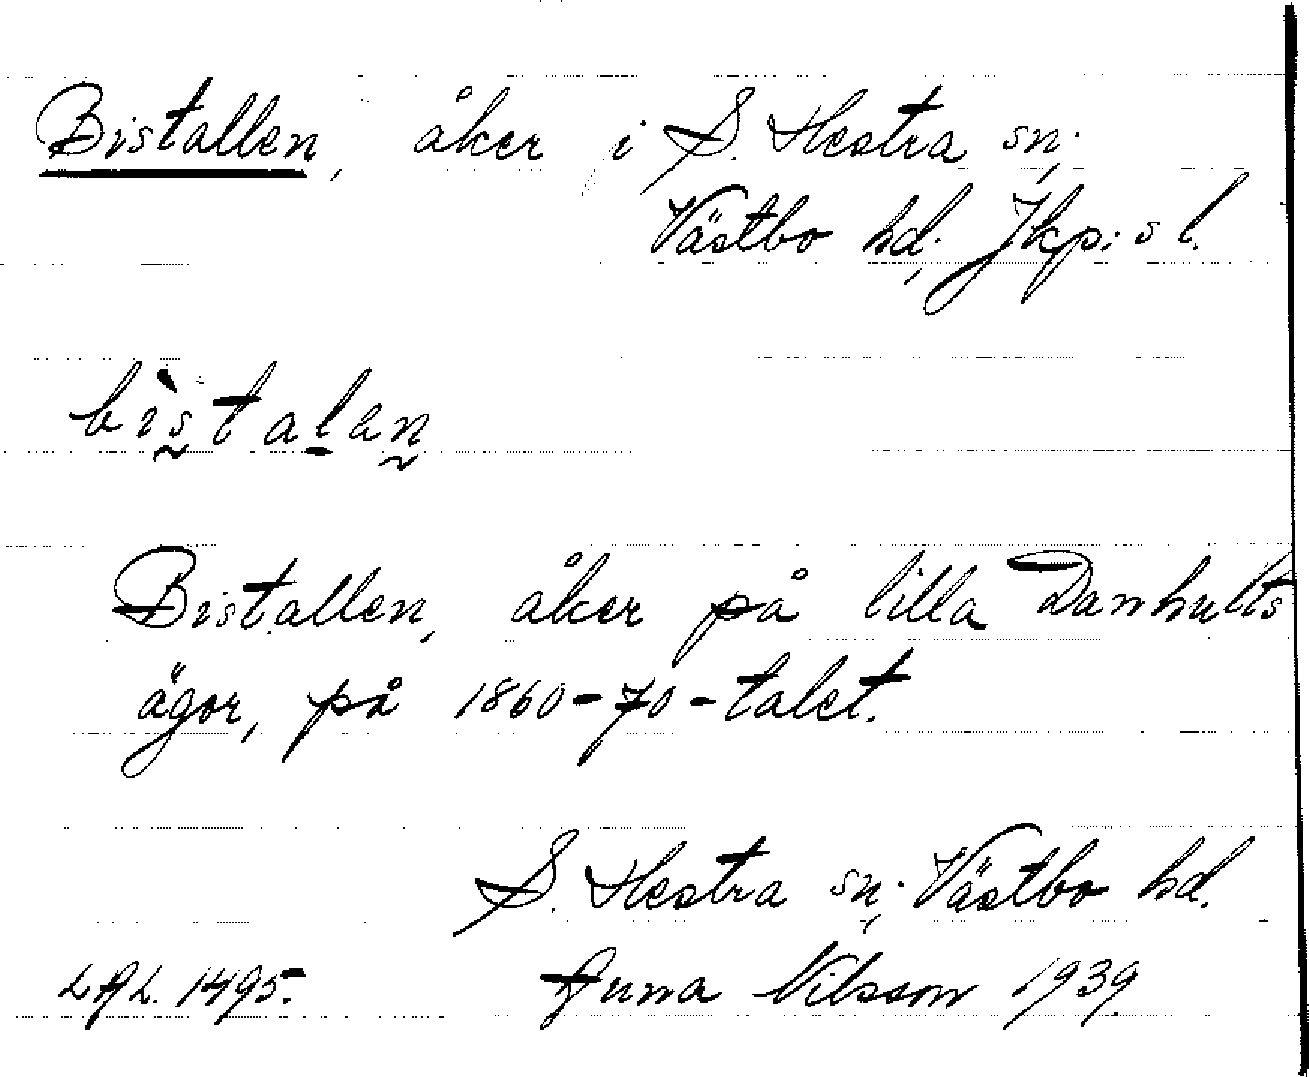 Bistallen, åker i S. Hestra sn;
Västbo hd; Jkp:s l.
bìstalen
Bistallen, åker på lilla Danhults
ägor, på 1860-70-talet.
S. Hestra sn; Västbo hd.
LAL. 1495. Anna Nilsson 1939